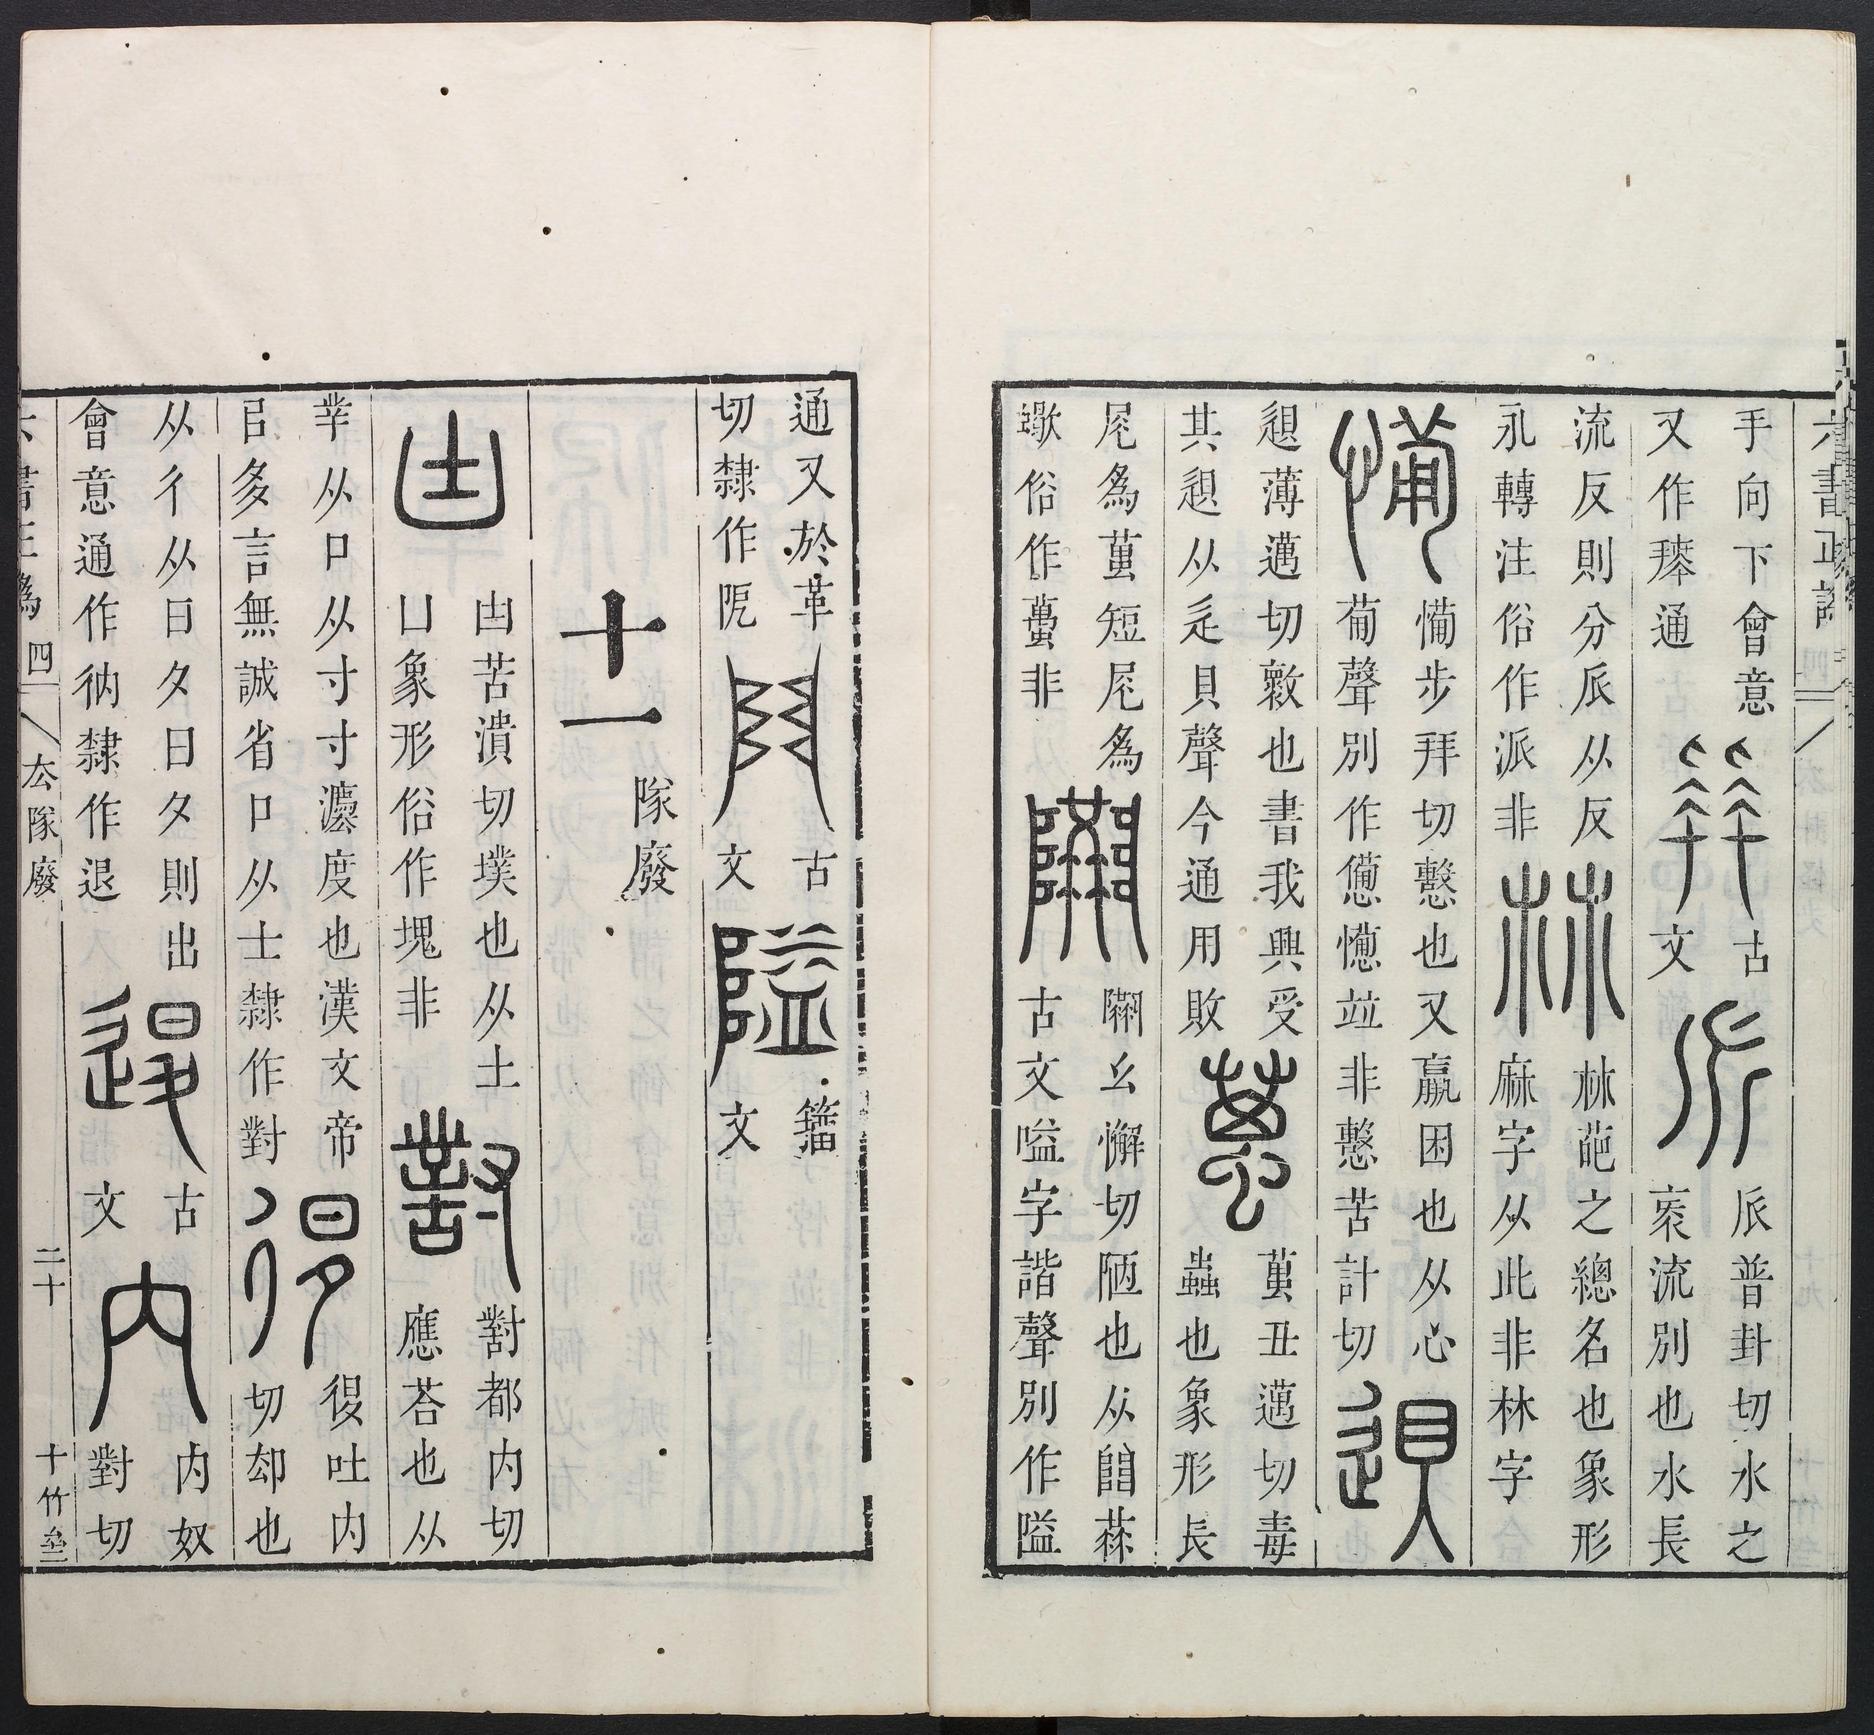 六書正譌
手向下會意
又作𢫶通
古
文
𠂢普卦切水之
衺流別也水長
流反則分𠂢从反
永轉注俗作派非
𣏟葩之總名也象形
麻字从此非林字
㥆步拜切憊也又羸困也从心
𤰈聲別作憊𢣍竝非憊苦計切
退薄邁切敹也書我興受
其退从辵貝聲今通用敗
萬丑邁切毒
蟲也象形長
尾爲萬短尾爲
蠍俗作蠆非
𨽀幺懈切陋也从𨸏𦮙
古文嗌字諧聲別作隘
通又於革
切隸作阨
古
文
籀
文
十一
隊廢
凷苦潰切墣也从土
凵象形俗作塊非
對都内切
應荅也从
丵从口从寸寸灋度也漢文帝
㠯多言無誠省口从士隸作對
復吐内
切却也
从彳从日夊日夊則出
會意通作衲隸作退
古
文
内奴
對切
六書正譌
四
夳隊廢
二十
十竹垒